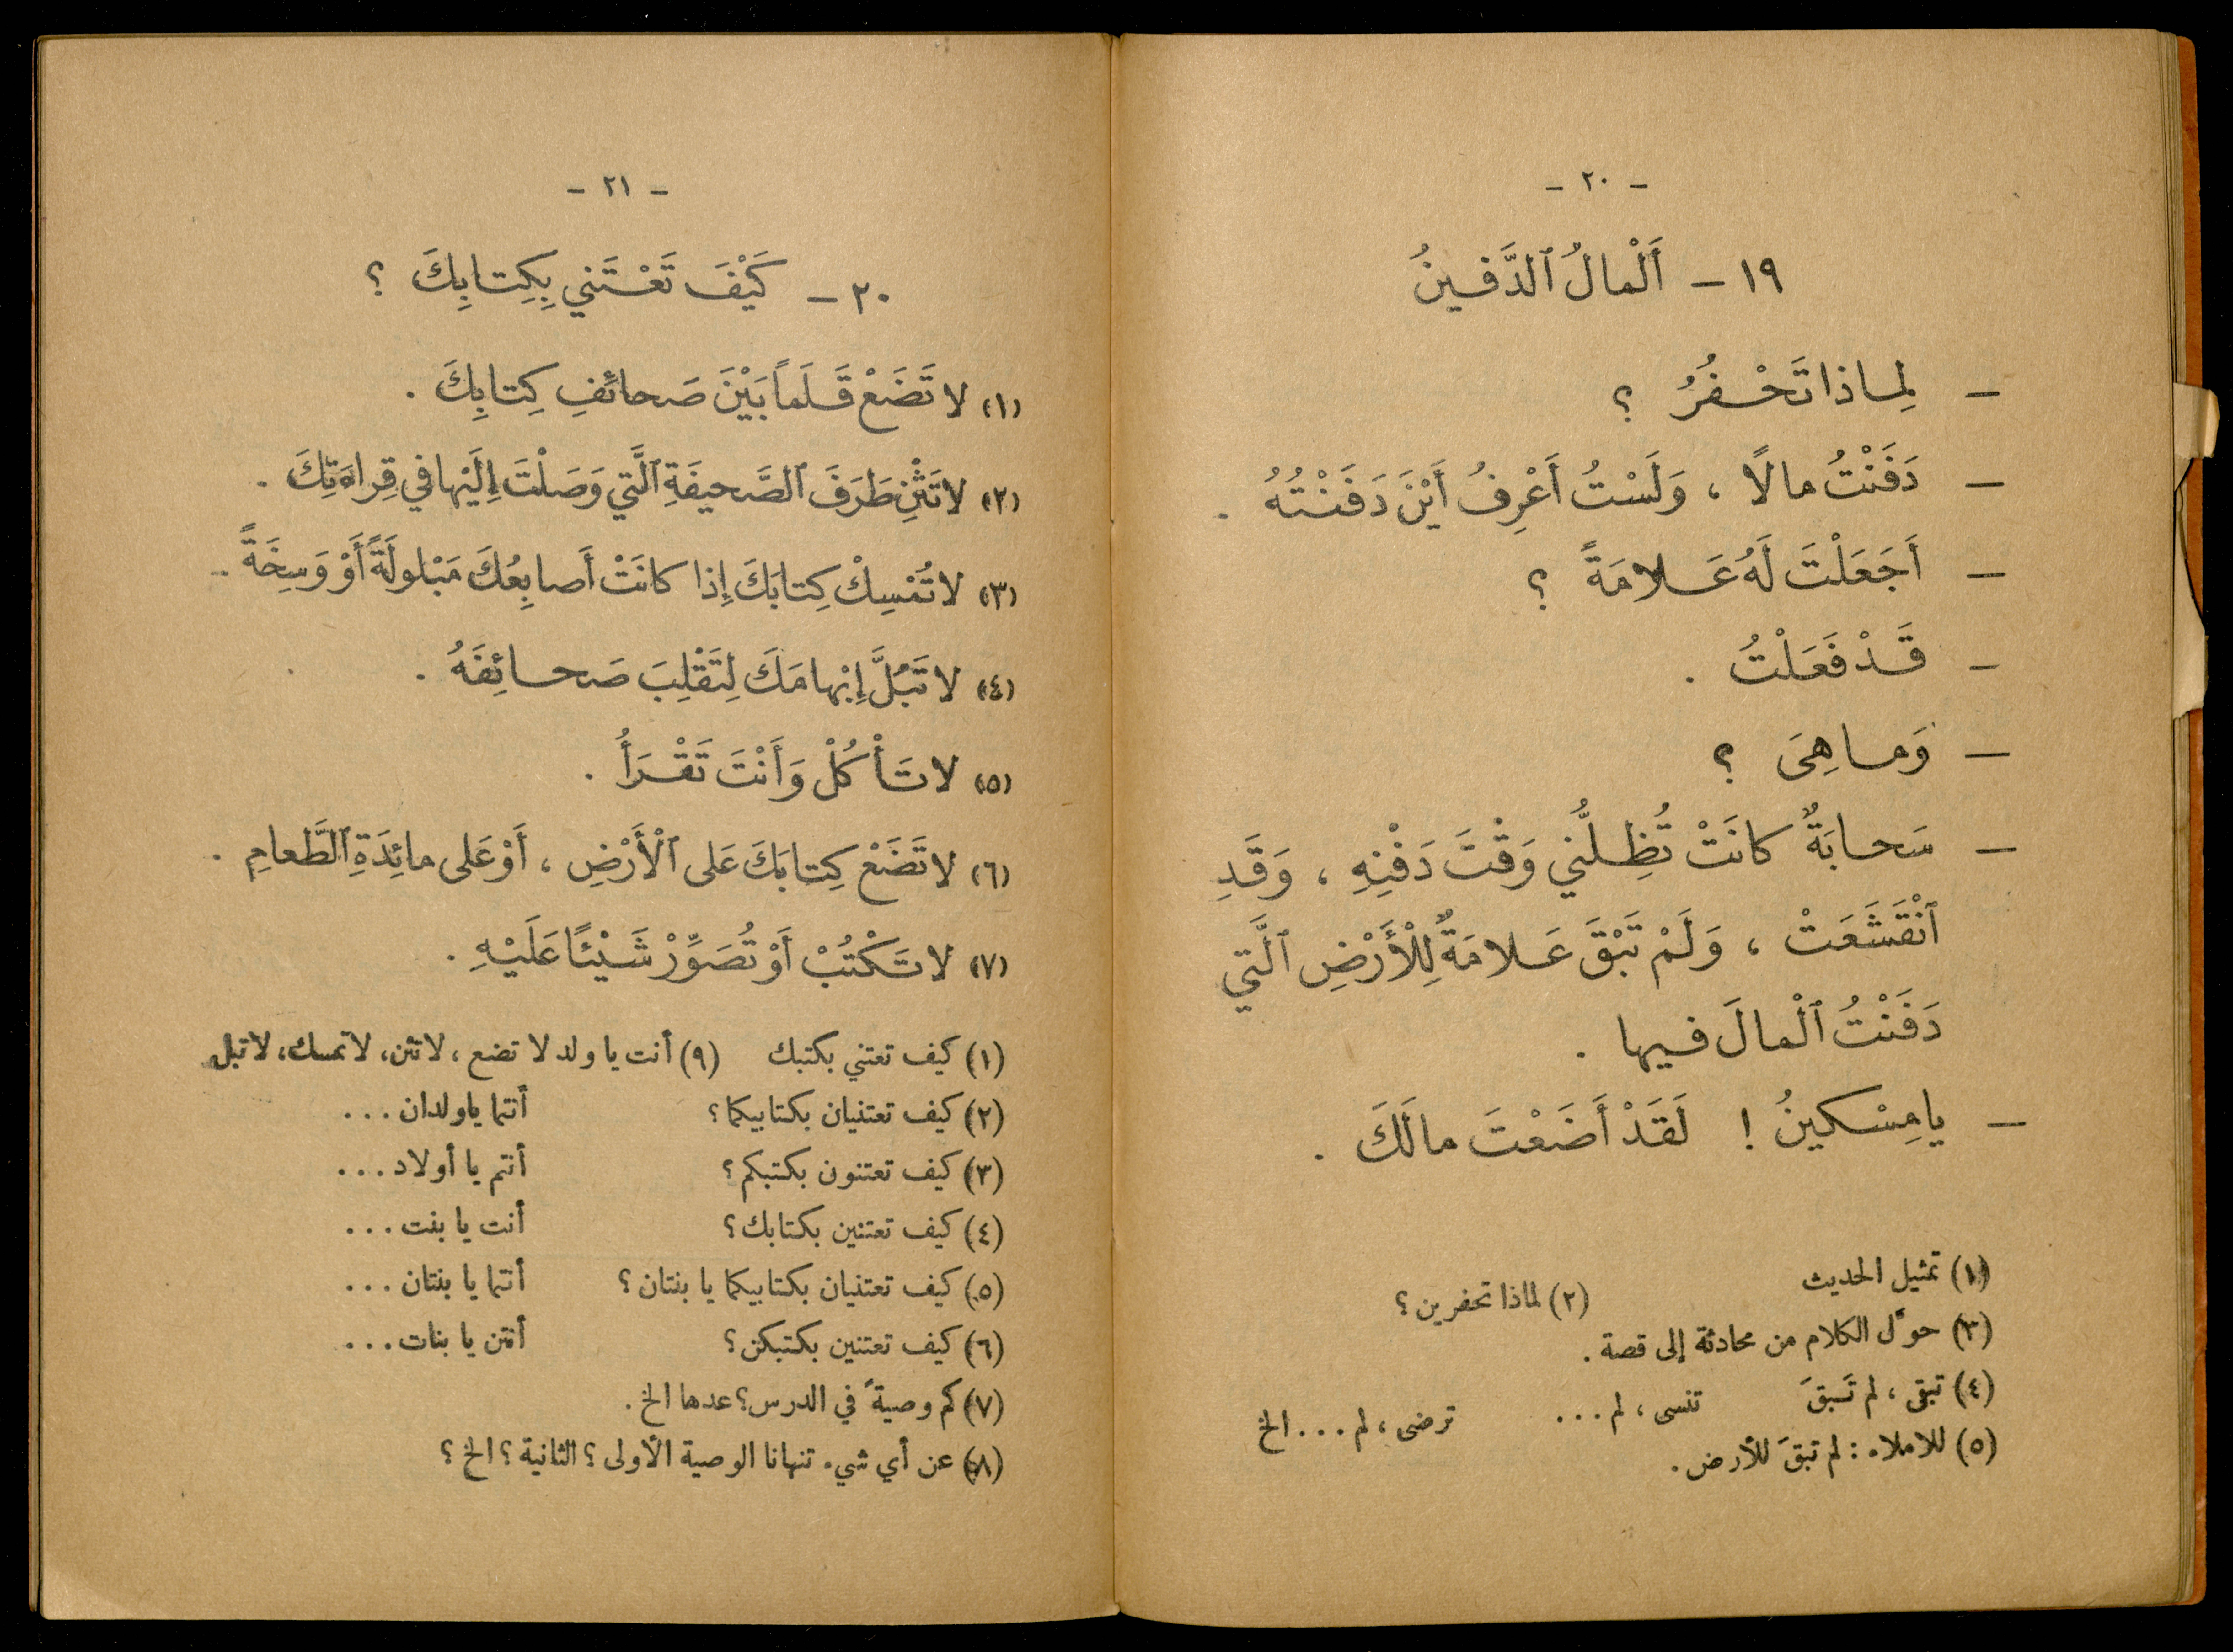 - ٢٠ -
١٩ - أَلْمالُ ٱلدَّفينُ
- لِماذا تَحْفُرُ ؟
- دَفَنْتُ مالًا ، وَلَسْتُ أَعْرِفُ أَيْنَ دَفَنْتُهُ .
- أَجَعَلْتَ لَهُ عَلامَةً ؟
- قَدْ فَعَلْتُ .
- وَما هِيَ ؟
- سَحابَةٌ كانَتْ تُظِلُّني وَقْتَ دَفْنِهِ ، وَقَدِ
ٱنْقَشَعَتْ ، وَلَمْ تَبْقَ عَلامَةٌ لِلْأَرْضِ ٱلَّتي
دَفَنْتُ ٱلْمالَ فيها .
- يا مِسْكينُ ! لَقَدْ أَضَعْتَ مالَكَ .
(١) تمثيل الحديث (٢) لماذا تحفرين ؟
(٣) حوّل الكلام من محادثة إلى قصة .
(٤) تبقى ، لم تَبقَ تنسى ، لم ... ترضى ، لم ... الخ
(٥) للاملاء : لم تبقَ للأرض .
- ٢١ -
٢٠ - كَيْفَ تَعْتَني بِكِتابِكَ ؟
(١) لا تَضَعْ قَلَماً بَيْنَ صَحائفِ كِتابِكَ .
(٢) لا تَثْنِ طَرَفَ ٱلصَّحيفَةِ ٱلَّتي وَصَلْتَ إِلَيْها في قِراءَتِكَ .
(٣) لا تُمْسِكْ كِتابَكَ إِذا كانَتْ أَصابِعُكَ مَبْلولَةً أَوْ وَسِخَةً .
(٤) لا تَبُلَّ إِبْهامَكَ لِتَقْلِبَ صَحائِفَهُ .
(٥) لا تَأْكُلْ وَأَنْتَ تَقْرَأُ .
(٦) لا تَضَعْ كِتابَكَ عَلى ٱلْأَرْضِ ، أَوْ عَلى مائِدَةِ ٱلطَّعامِ .
(٧) لا تَكْتُبْ أَوْ تُصَوِّرْ شَيْئًا عَلَيْهِ .
(١) كيف تعتني بكتبك (٩) أنت يا ولد لا تضع ، لا تثن ، لا تمسك ، لا تبل
(٢) كيف تعتنيان بكتابيكما ؟ أنتما ياولدان ...
(٣) كيف تعتنون بكتبكم ؟ أنتم يا أولاد ...
(٤) كيف تعتنين بكتابك ؟ أنت يا بنت ...
(٥) كيف تعتنيان بكتابيكما يا بنتان ؟ أنتما يا بنتان ...
(٦) كيف تعتنين بكتبكن ؟ أنتن يا بنات ...
(٧) كم وصيةً في الدرس ؟ عدها الخ .
(٨) عن أي شيء تنهانا الوصية الأولى ؟ الثانية ؟ الخ ؟